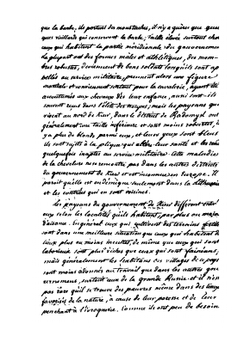 que la barbe, ils portent des moustaches, il n'y a guère que quel
ques vieillards qui conservent la barbe; taille élevée surtout chez
ceux qui habitent la partie méridionale du gouvernement
la plupart ont des formes mâles et athlétiques, des mem-
bres robustes, deviennent de bons soldats lorsqu'ils sont ap
pelés au service militaire, prennent alors une figure
martiale et conviennent surtout pour la cavalerie, ayant été
accoutumés aux chevaux dès leur enfance, aussi sont-ils
connus sous
vivent au nord de Kiew, dans le district de Radomysl ont
généralement une taille inférieure et sont moins robustes, il
y a plus de blonds parmi eux, et leurs yeux sont bleus
ils sont sujets à la plique qui altère leur santé et les rend
quelquefois inaptes au service militaire. Cette maladie
de la chevelure se rencontre peu dans les autres districts
du gouvernement de Kiew et est inconnue en Europe. Il
paraît qu'elle est endémique seulement dans la Lithuanie
et les contrées qui en sont voisines.
Les paysans du gouvernement de Kiew diffèrent entre
eux selon les localités qu'ils habitent, par plus ou moins
d'aisance. En général ceux qui cultivent des terrains fertiles
sont dans une meilleure situation que ceux qui habitent des
lieux plus ou moins incultes, de même que ceux qui sont
laborieux sont plus riches que ceux qui sont fainéans,
mais généralement les habitans des villages de ce pays
sont moins adonnés au travail que dans les autres gou
vernemens, surtout ceux de la grande Russie. et il n'est
pas rare qu'il se trouve des pauvres même dans des lieux
favorisés de la nature, à cause de leur paresse et de leur
penchant à l'ivrognerie, comme ils ont peu de besoin